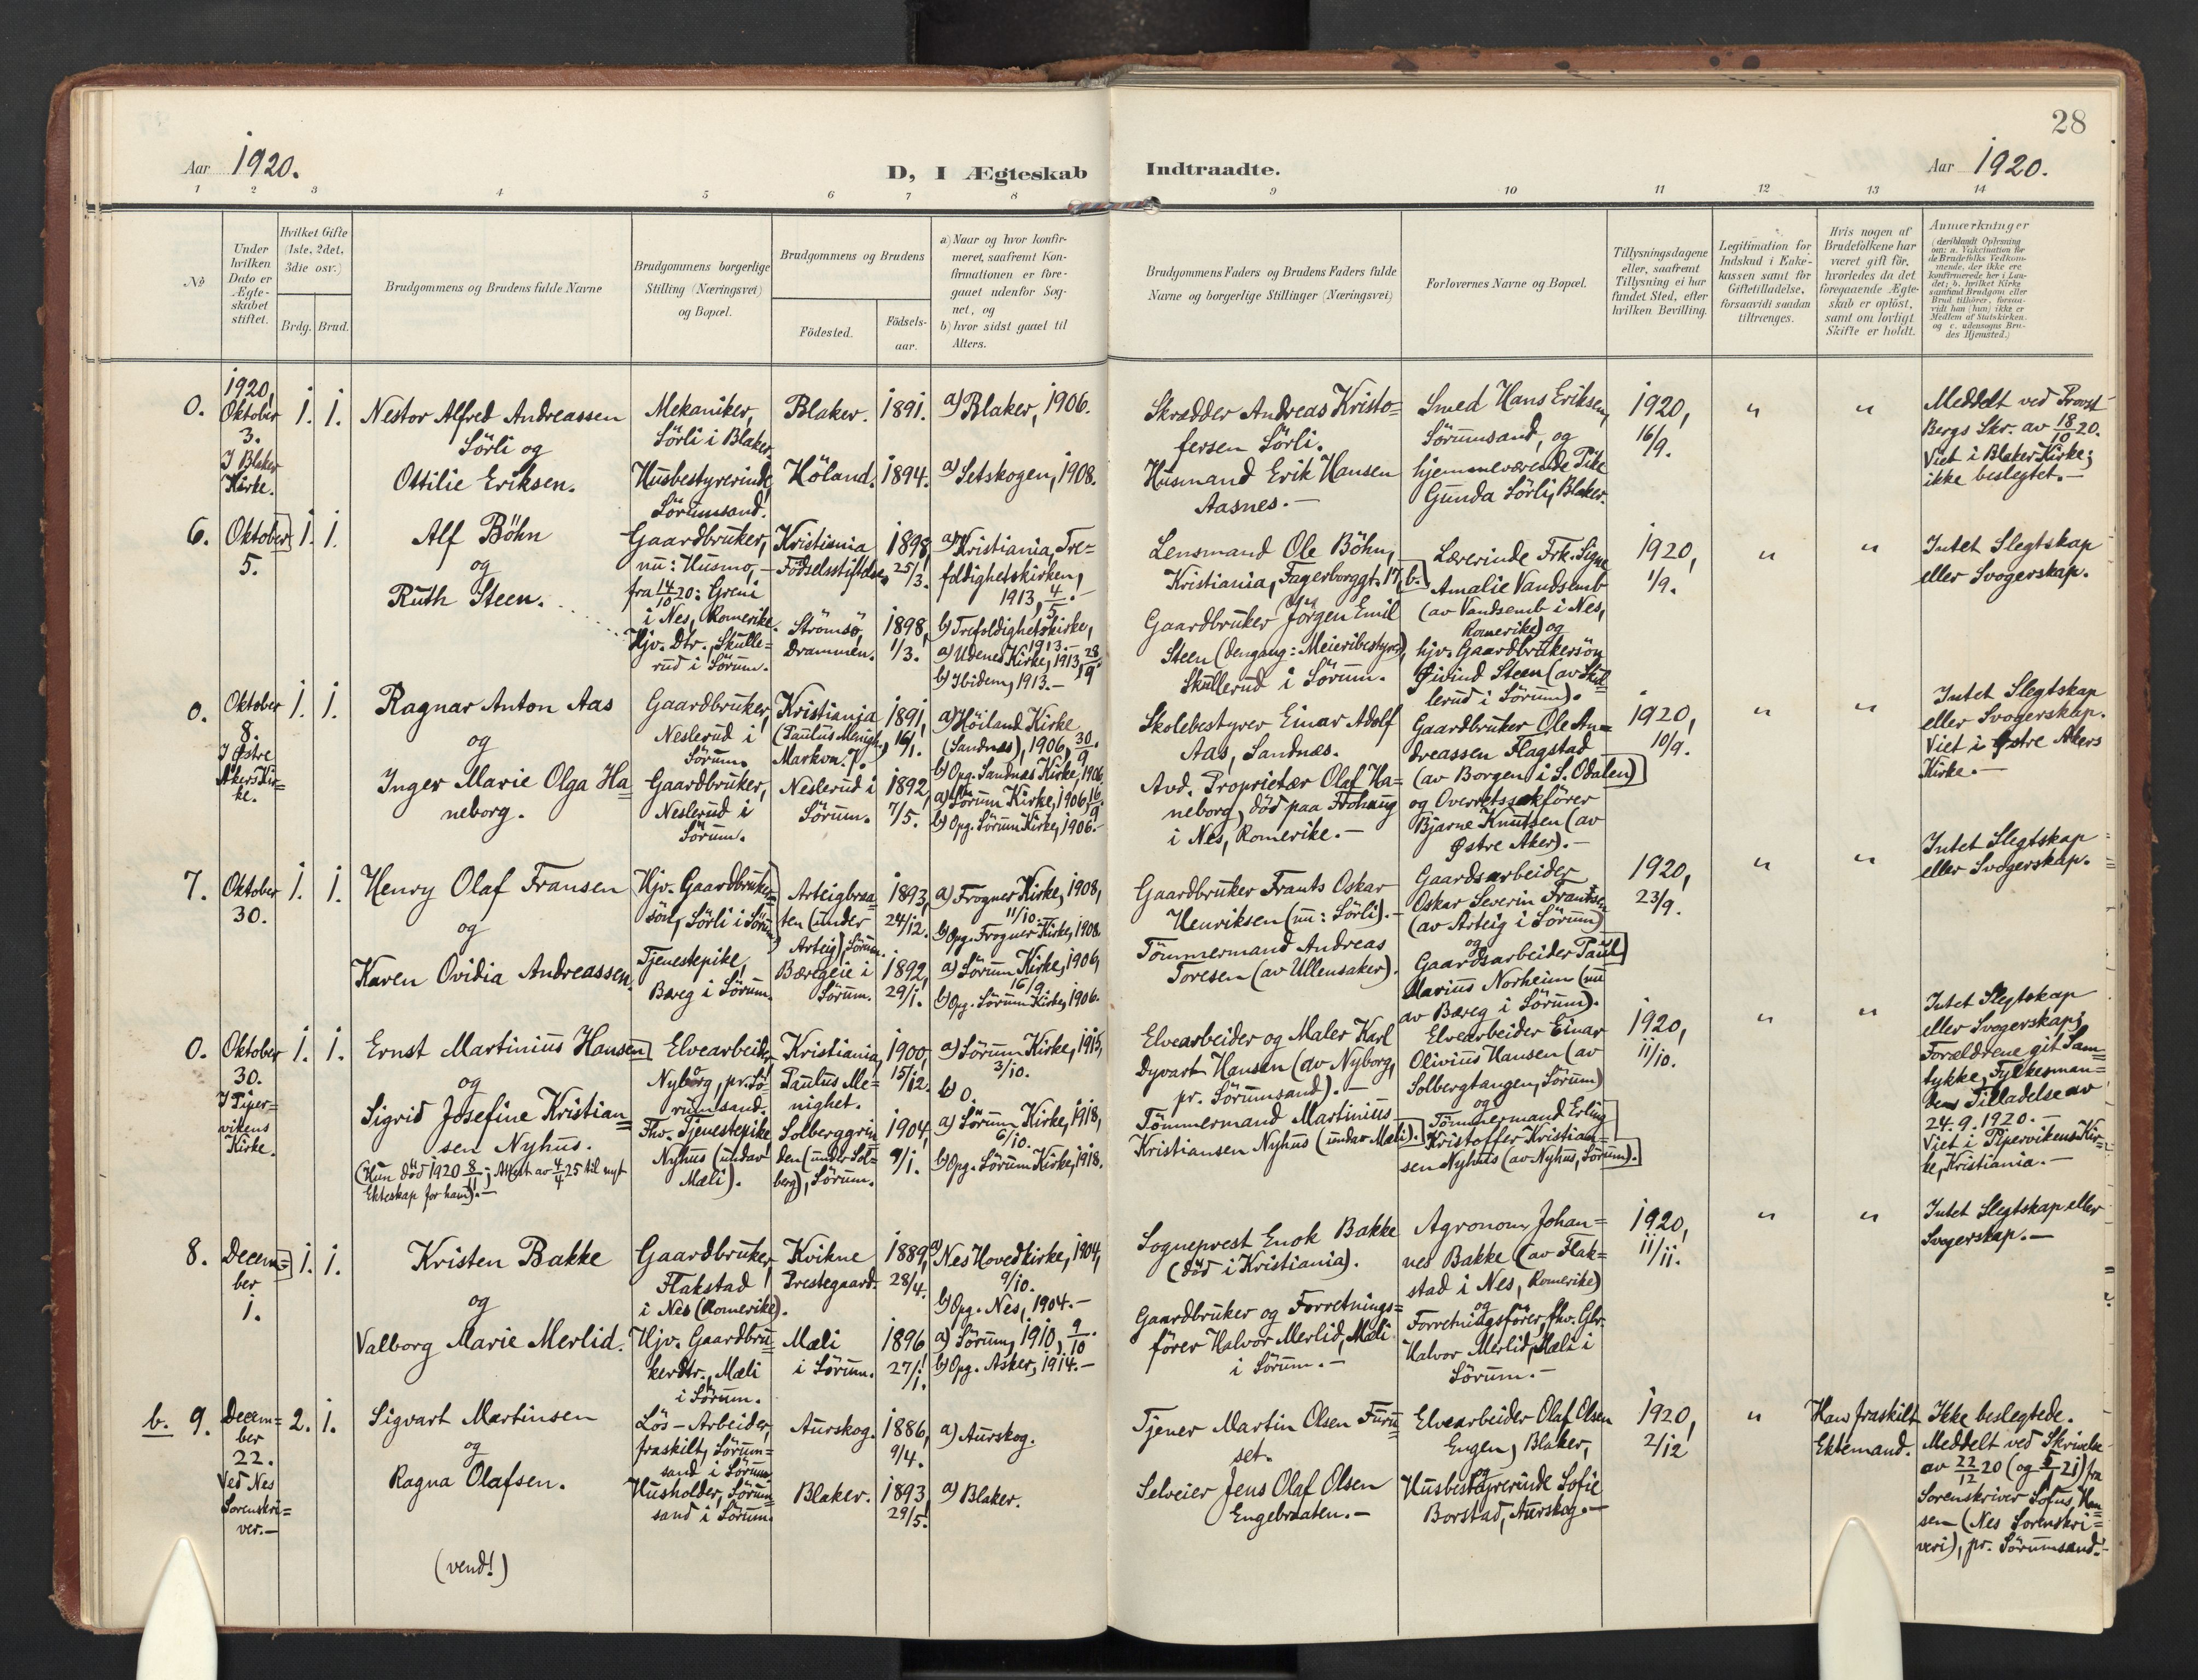 28
Aar 1920.
D, I Ægteskab Indtraadte.
Aar 1920.
1 2 3 4 5 6 7 8 9 10 11 12 13 14
No
Under hvilken Dato er Ægteskabet stiftet.
Hvilket Gifte (1ste, 2det, 3die osv.)
Brdg. Brud.
Brudgommens og Brudens fulde Navne
Brudgommens borgerlige Stilling (Næringsvei) og Bopæl.
Brudgommens og Brudens
Födested.
Födsels-aar.
a) Naar og hvor konfirmeret, saafremt Konfirmationen er foregaaet udenfor Sognet, og
b) hvor sidst gaaet til Alters.
Brudgommens Faders og Brudens Faders fulde Navne og borgerlige Stillinger (Næringsvei)
Forlovernes Navne og Bopæl.
Tillysningsdagene eller, saafremt Tillysning ei har fundet Sted, efter hvilken Bevilling.
Legitimation for Indskud i Enkekassen samt for Giftetilladelse, forsaavidt saadan tiltrænges.
Hvis nogen af Brudefolkene har været gift før, hvorledes da det foregaaende Ægteskab er oplöst, samt om lovligt Skifte er holdt.
Anmærkninger
(deriblandt Oplysning om: a. Vakcination for de Brudefolks Vedkommende, der ikke ere konfirmerede her i Landet; b. hvilket Kirkesamfund Brudgom eller Brud tilhörer, forsaavidt han (hun) ikke er Medlem af Statskirken, og c. udensogns Brudes Hjemsted.)
0.
1920,
Oktober
3.
I Blaker
Kirke.
1. 1.
Nestor Alfred Andreassen
Sörli og
Ottilie Eriksen.
Mekaniker,
Sörli i Blaker.
Husbestyrerinde,
Sörumsand.
Blaker. 1891.
Höland. 1894.
a) Blaker, 1906.
a) Setskogen, 1908.
Skrædder Andreas Kristo=
fersen Sörli.
Husmand Erik Hansen
Aasnes.—
Smed Hans Eriksen,
Sörumsand, og
hjemmeværende Pike
Gunda Sörli, Blaker.
1920,
16/9.
" "
Meddelt ved Provst
Bergs Skr. av 18/10 20.
Viet i Blaker Kirke;
ikke beslegtet.—
6.
Oktober
5.
1. 1.
Alf Böhn
og
Ruth Steen.
Gaardbruker,
nu: Husmo,—
fra 14/10 20: Greni
i Nes, Romerike.
Hjv. Dtr., Skulle=
rud i Sörum.
Kristiania
Födselsstiftelse,
1898,
25/3.
Strömsö,
Drammen.
1898,
1/3.
a) Kristiania, Tre=
foldighetskirken,
1913, 4/5.—
b) Trefoldighetskirke,
1913.—
a) Udenes Kirke, 1913, 28/9
b) Ibidem, 1913.—
Lensmand Ole Böhn,
Kristiania, Fagerborggt. 17, b.
Gaardbruker Jörgen Emil
Steen (dengang: Meieribestyrer),
Skullerud i Sörum.
Lærerinde Frk. Signe
Amalie Vandsemb
(av Vandsemb i Nes,
Romerike) og
hjv. Gaardbrukersön
Øivind Steen (av Skul=
lerud i Sörum).
1920,
1/9.
" "
Intet Slegtskap
eller Svogerskap.
0.
Oktober
8.
I Østre
Akers Kir=
ke.
1. 1.
Ragnar Anton Aas
og
Inger Marie Olga Ha=
neborg.
Gaardbruker,
Neslerud i
Sörum.
Gaardbruker,
Neslerud i
Sörum.
Kristiania
(Paulus Menigh.,
Markvn. 7.
1891,
16/1.
Neslerud i
Sörum.
1892,
7/5.
a) Höiland Kirke
(Sandnes), 1906, 30/9.
b) Opg. Sandnes Kirke, 1906.
a) Sörum Kirke, 1906, 16/9.
b) Opg. Sörum Kirke, 1906.—
Skolebestyrer Einar Adolf
Aas, Sandnæs.
Avd. Proprietær Olaf Ha=
neborg, död paa Frohaug
i Nes, Romerike.—
Gaardbruker Ole An=
dreassen Flagstad
(av Borgen i S. Odalen)
og Overretssakförer
Bjarne Knutsen (av
Østre Aker).—
1920,
10/9.
" "
Intet Slegtskap
eller Svogerskap.
Viet i Østre Akers
Kirke.—
7.
Oktober
30.
1. 1.
Henry Olaf Fransen
og
Karen Ovidia Andreassen.
Hjv. Gaardbruker=
sön, Sörli i Sörum
Tjenestepike,
Bæreg i Sörum.
Arteigbraa=
ten (under
Arteig) Sörum.
1893,
24/12.
Bæregeie i
Sörum.
1892,
29/1.
a) Frogner Kirke, 1908,
11/10.
b) Opg. Frogner Kirke, 1908.
a) Sörum Kirke, 1906,
16/9.
b) Opg. Sörum Kirke, 1906.
Gaardbruker Frants Oskar
Henriksen (nu: Sörli).—
Tömmermand Andreas
Toresen (av Ullensaker).
Gaardsarbeider
Oskar Severin Frantsen
(av Arteig i Sörum)
og
Gaardsarbeider Paul
Marius Norheim (nu
av Bæreg i Sörum).
1920,
23/9.
" "
Intet Slegtskap
eller Svogerskap.
0.
Oktober
30.
I Piper=
vikens
Kirke.
1. 1.
Ernst Martinius Hansen
og
Sigrid Josefine Kristian=
sen Nyhus.
(Hun död 1920 8/11; Attest av 4/4 25 til nyt
Ekteskap for ham).—
Elvearbeider,
Nyborg, pr. Sö=
rumsand.
Fhv. Tjenestepike,
Nyhus (undav
Mæli).
Kristiania,
Paulus Me=
nighet.
1900,
15/12.
Solberggrin=
den (under Sol=
berg), Sörum.
1904,
9/1.
a) Sörum Kirke, 1915,
3/10.
b) 0.
a) Sörum Kirke, 1918,
6/10.
b) Opg. Sörum Kirke, 1918.
Elvearbeider og Maler Karl
Dyvart Hansen (av Nyborg,
pr. Sörumsand).—
Tömmermand Martinius
Kristiansen Nyhus (undav Mæli).
Elvearbeider Einar
Olivius Hansen (av
Solbergtangen, Sörum)
og
Tömmermand Erling
Kristoffer Kristian=
sen Nyhus (av Nyhus, Sörum).
1920,
11/10.
" "
Intet Slegtskap
eller Svogerskap;
Forældrene git Sam=
tykke, Fylkesman=
den Tilladelse av
24.9.1920.—
Viet i Pipervikens Kir=
ke, Kristiania.—
8.
Decem=
ber
1.
1. 1.
Kristen Bakke
og
Valborg Marie Merlid.
Gaardbruker,
Flakstad
i Nes (Romerike).
Hjv. Gaardbru=
kerdtr., Mæli
i Sörum.
Kvikne
Prestegaard.
1889,
28/4.
Mæli
i Sörum.
1896,
27/1.
a) Nes Hovedkirke, 1904,
9/10.
b) Opg. Nes, 1904.—
a) Sörum, 1910, 9/10.
b) Opg. Asker, 1914.—
Sogneprest Enok Bakke
(död i Kristiania).
Gaardbruker og Forretnings=
förer Halvor Merlid, Mæli
i Sörum.—
Agronom Johan=
nes Bakke (av Flak=
stad i Nes, Romerike)
og
Forretningsförer, fhv. Gbr.
Halvor Merlid, Mæli i
Sörum.—
1920,
11/11.
" "
Intet Slegtskap eller
Svogerskap.—
b. 9.
Decem=
ber
22.
Ved Nes
Sorenskri=
ver.—
2. 1.
Sigvart Martinsen
og
Ragna Olafsen.
Lös-Arbeider,
fraskilt, Sörum=
sand i Sörum.
Husholder, Sörum=
sand i Sörum.
Aurskog. 1886,
9/4.
Blaker. 1893,
29/5.
a) Aurskog.
a) Blaker.
Tjener Martin Olsen Furu=
set.
Selveier Jens Olaf Olsen
Engebraaten.—
Elvearbeider Olaf Olsen
Engen, Blaker,
og
Husbestyrerinde Sofie
Borstad, Aurskog.—
1920,
2/12
"
Han fraskilt
Ektemand.
Ikke beslegtede.
Meddelt ved Skrivelse
av 22/12 20 (og 21) fra
Sorenskriver Sofus Han=
sen (Nes Sorenskri=
veri), pr. Sörumsand.—
(vend!)